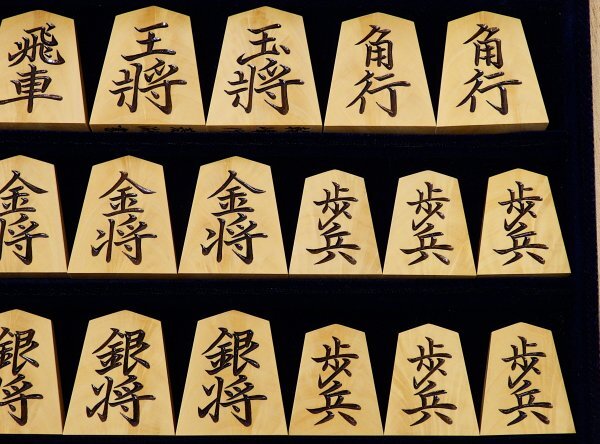 飛車 王将 玉将 角行 角行
金将 金将 金将 歩兵 歩兵 歩兵
銀将 銀将 銀将 歩兵 歩兵 歩兵